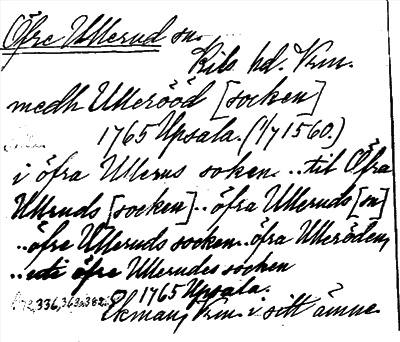 Öfre Ullerud sn.
Kils hd. Vrm.
medh Ullerööd [socken]
1765 Upsala. (1/7 1560.)
i öfra Ullerus soken...til Öfra
Ullruds [socken]..öfra Ulleruds [sn]
..öfre Ulleruds socken..öfra Ulleröden,
..uti öfre Ullerudes socken
1765 Upsala.
336, 363, 382
Ekman, Vrm. i sitt ämne